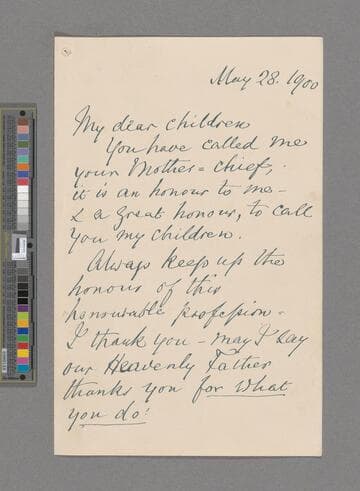 May 28. 1900
My dear children
You have called me
your Mother=chief,
it is an honour to me -
& a great honour, to call
you my children.
Always keep up the
honour of this
honourable profession -
I thank you - may I say
our Heavenly Father
thanks you for what
you do!